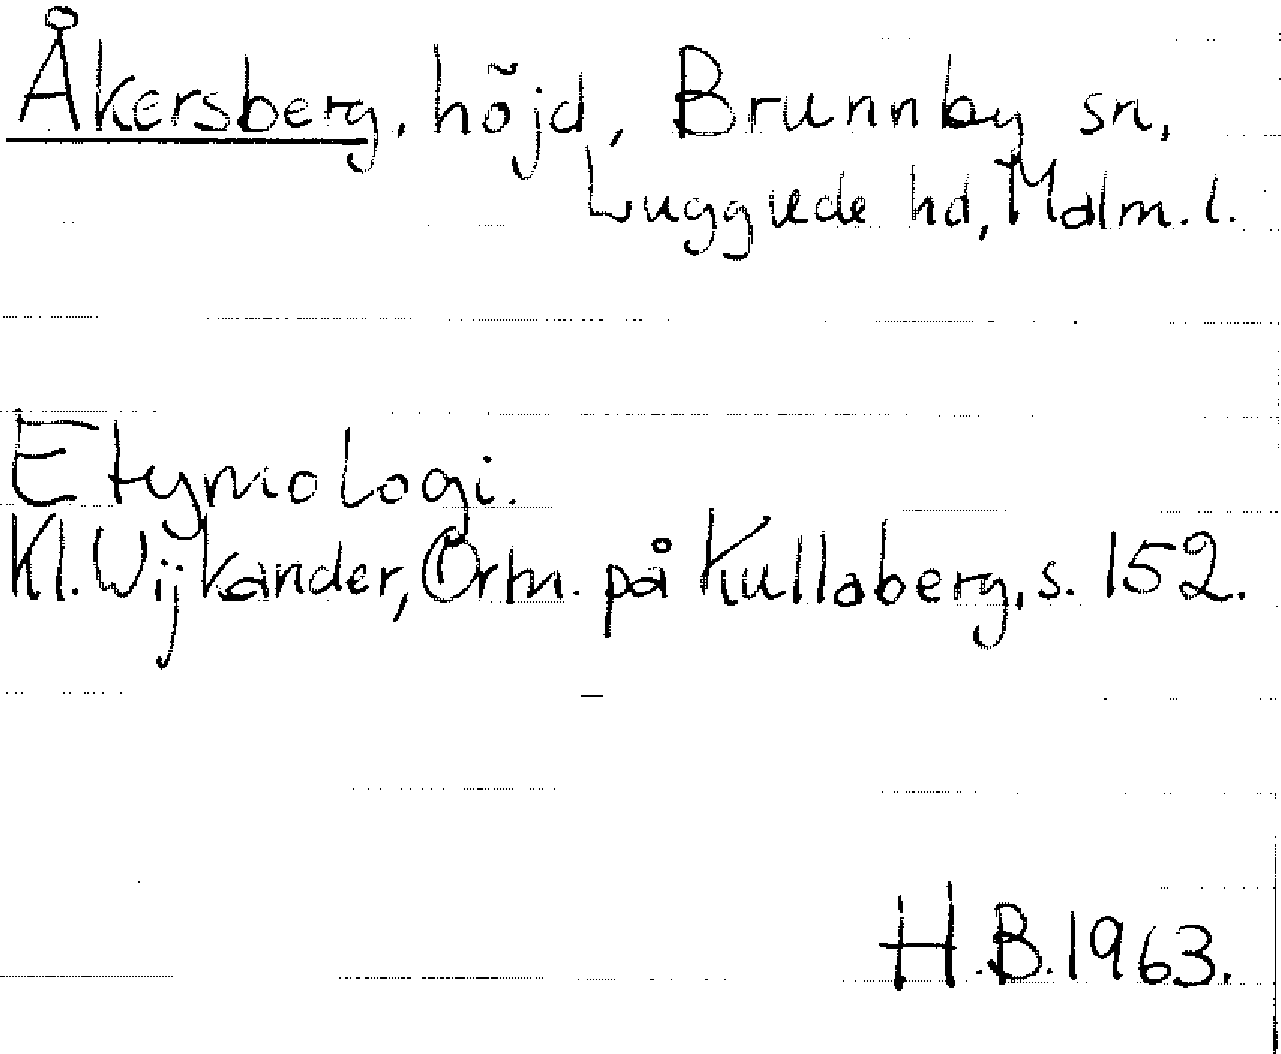 Åkersberg, höjd, Brunnby sn,
Luggude hd, Malm. l.
Etymologi.
Kl. Wijkander, Ortn. på Kullaberg, s. 152.
H.B. 1963.